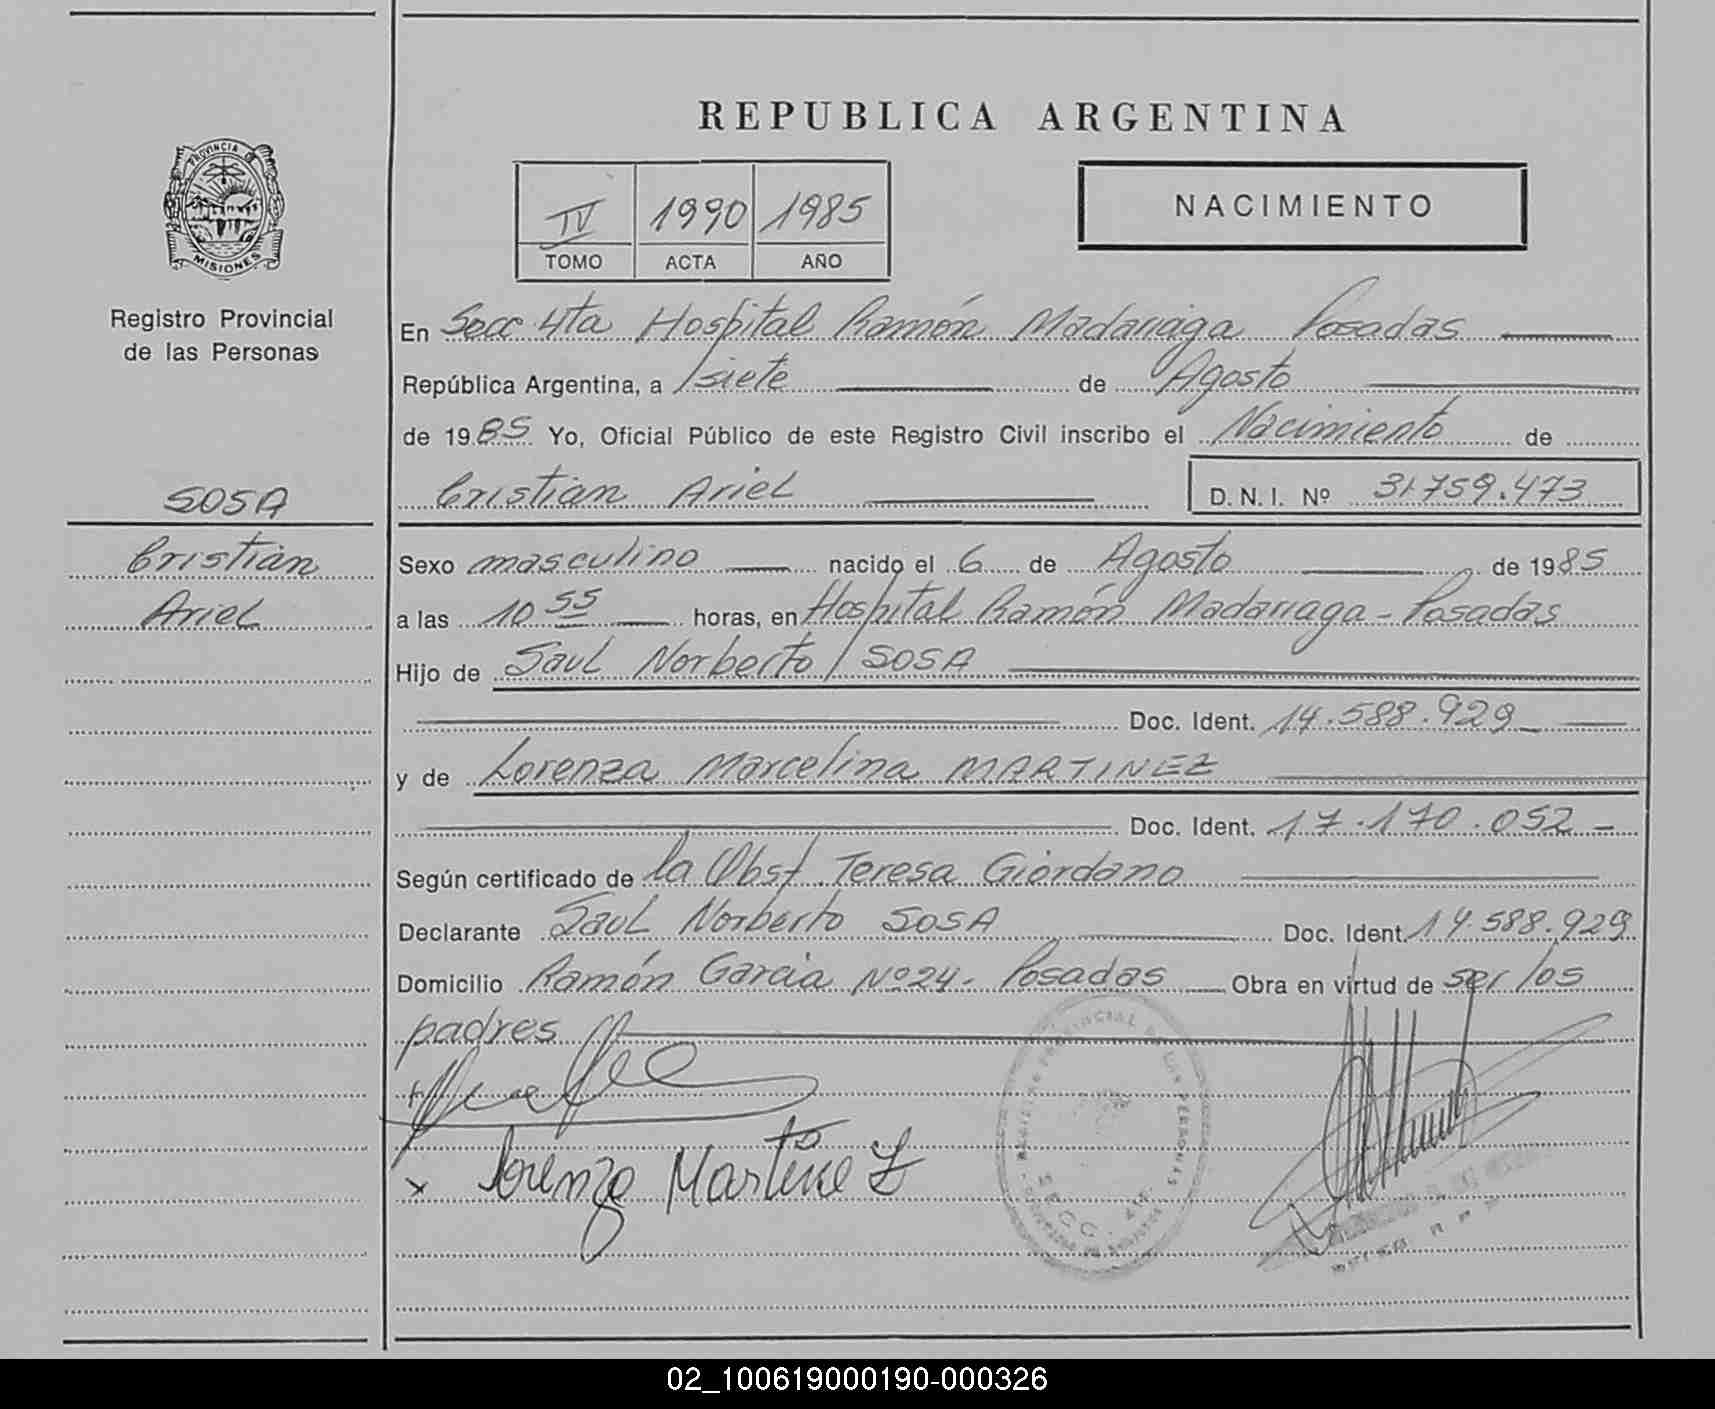 REPUBLICA ARGENTINA
PROVINCIA DE
MISIONES
Registro Provincial
de las Personas
IV 1990 1985
TOMO ACTA AÑO
NACIMIENTO
En Secc 4ta Hospital Ramón Madariaga Posadas
República Argentina, a siete de Agosto
de 1985 Yo, Oficial Público de este Registro Civil inscribo el Nacimiento de
Cristian Ariel D.N.I. Nº 31759.473
SOSA
Cristian
Ariel
Sexo masculino nacido el 6 de Agosto de 1985
a las 10 55 horas, en Hospital Ramón Madariaga - Posadas
Hijo de Saul Norberto SOSA
Doc. Ident. 14.588.929
y de Lorenza Marcelina MARTINEZ
Doc. Ident. 17.170.052 -
Según certificado de la Obst. Teresa Giordano
Declarante Saul Norberto SOSA Doc. Ident. 14.588.929
Domicilio Ramón Garcia Nº 24 - Posadas Obra en virtud de ser los
padres
x Lorenza Martinez
REGISTRO PROVINCIAL DE LAS PERSONAS
SECC. 4ta.
02_100619000190-000326